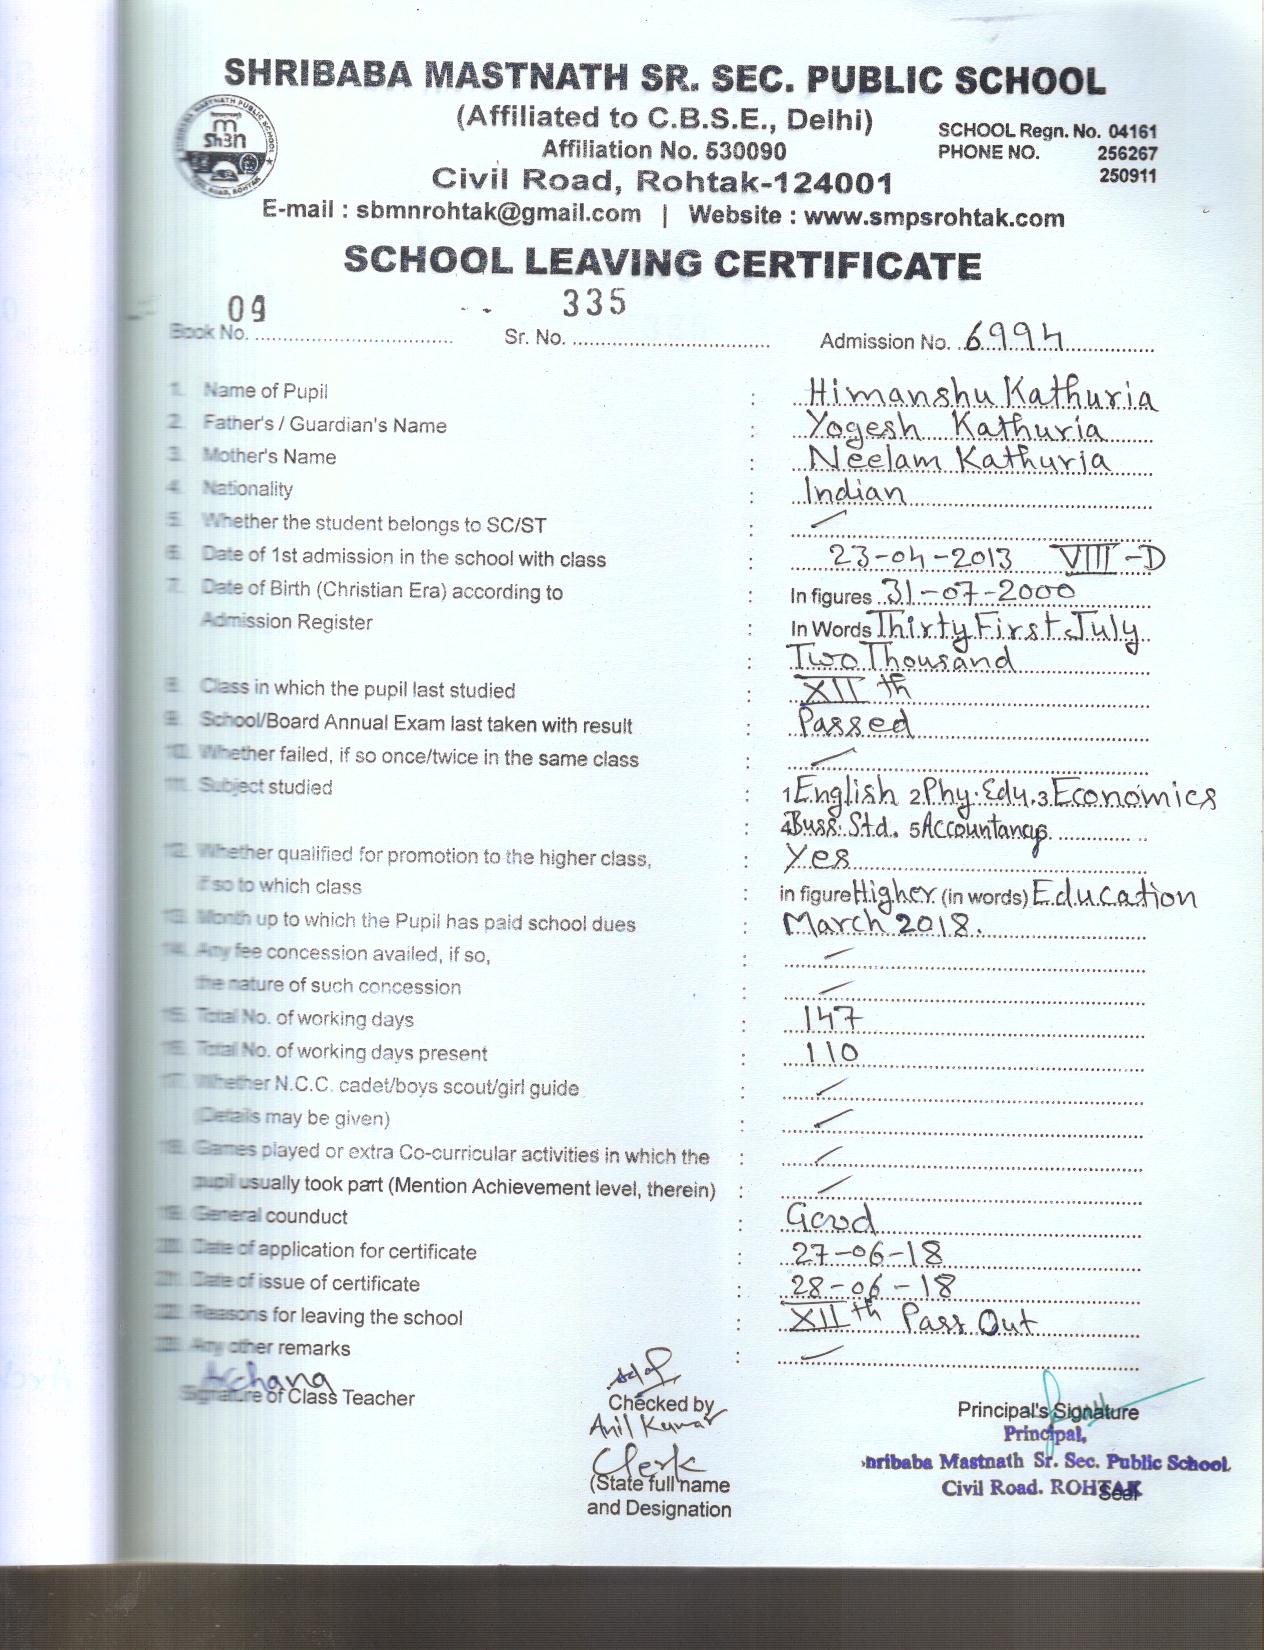 SHRIBABA MASTNATH SR. SEC. PUBLIC SCHOOL
(Affiliated to C.B.S.E., Delhi)
Affiliation No. 530090
SCHOOL Regn. No. 04161
PHONE NO. 256267
250911
Civil Road, Rohtak-124001
E-mail : sbmnrohtak@gmail.com | Website : www.smpsrohtak.com
SCHOOL LEAVING CERTIFICATE
Book No. 09 Sr. No. 335 Admission No. 6994
1. Name of Pupil : Himanshu Kathuria
2. Father's / Guardian's Name : Yogesh Kathuria
3. Mother's Name : Neelam Kathuria
4. Nationality : Indian
5. Whether the student belongs to SC/ST :
6. Date of 1st admission in the school with class : 23-04-2013 VIII-D
7. Date of Birth (Christian Era) according to : In figures 31-07-2000
Admission Register : In Words Thirty First July
: Two Thousand
8. Class in which the pupil last studied : XII th
9. School/Board Annual Exam last taken with result : Passed
10. Whether failed, if so once/twice in the same class :
11. Subject studied : 1 English 2 Phy. Edu. 3 Economics
: 4 Buss. Std. 5 Accountancy
12. Whether qualified for promotion to the higher class, : Yes
if so to which class : in figure Higher (in words) Education
13. Month up to which the Pupil has paid school dues : March 2018.
14. Any fee concession availed, if so, :
the nature of such concession :
15. Total No. of working days : 147
16. Total No. of working days present : 110
17. Whether N.C.C. cadet/boys scout/girl guide :
(Details may be given) :
18. Games played or extra Co-curricular activities in which the :
pupil usually took part (Mention Achievement level, therein) :
19. General counduct : Good
20. Date of application for certificate : 27-06-18
21. Date of issue of certificate : 28-06-18
22. Reasons for leaving the school : XII th Pass Out
23. Any other remarks :
Signature of Class Teacher
Checked by
Anil Kumar
Clerk
(State full name
and Designation
Principal's Signature
Principal,
hribaba Mastnath Sr. Sec. Public School
Civil Road. ROHTAK
Seal